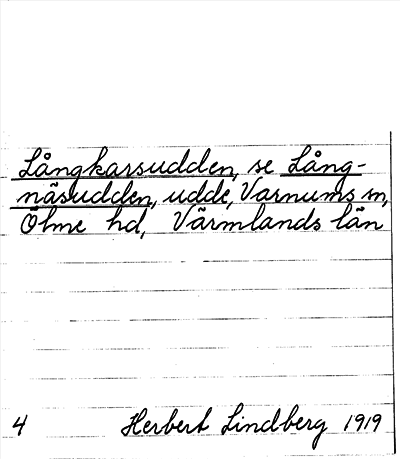 Långkarsudden, se Lång-
näsudden, udde, Varnums sn,
Ölme hd, Värmlands län
4 Herbert Lindberg 1919